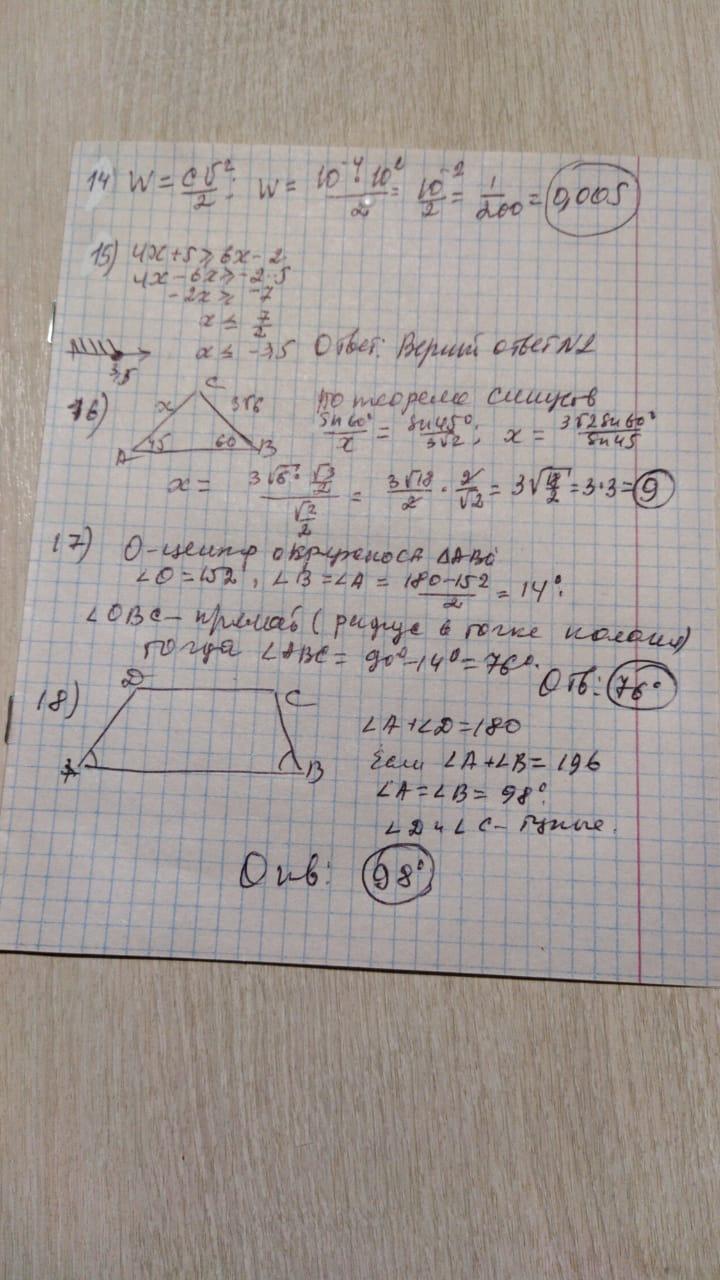 14) W = CU²/2; W = 10⁻⁴·10²/2 = 10⁻²/2 = 1/200 = 0,005
15) 4x+5 ≥ 6x-2
4x-6x ≥ -2-5
-2x ≥ -7
x ≤ 7/2
3,5 x ≤ -3,5 Ответ: Верный ответ N1
16) A B C x 3√6 45 60 По теореме синусов
sin60°/x = sin45°/3√2; x = 3√2 sin60°/sin45
x = 3√6·√3/2 / √2/2 = 3√18/2 · 2/√2 = 3√18/2 = 3·3 = 9
17) О-центр ΔABO
∠O=152°, ∠B=∠A = 180-152/2 = 14°.
∠OBC- (радиус в точке)
тогда ∠ABC = 90°-14° = 76°.
Отв: 76°
18) D C A B
∠A+∠D=180
Если ∠A+∠B= 196
∠A=∠B= 98°.
∠D и ∠C-
Отв: 98°